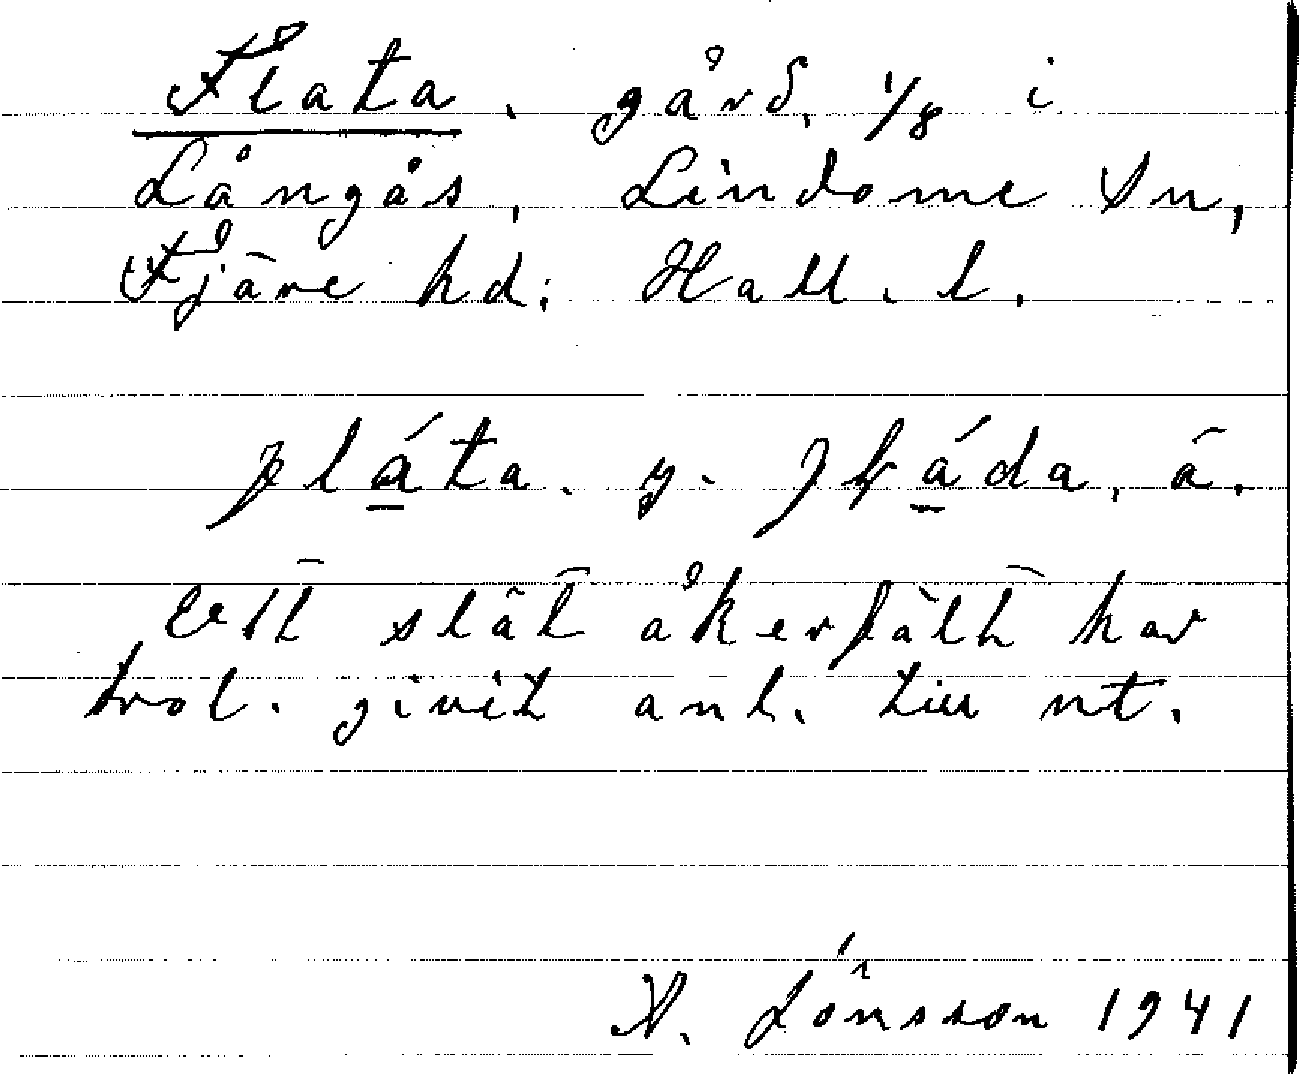 Flata, gård, 1/8 i
Långås, Lindome Sn,
Fjäre hd; Hall. l.
fláta. y. då.
Ett slätt åkerfält har
trol. givit anl. till nt.
A. Jönsson 1941